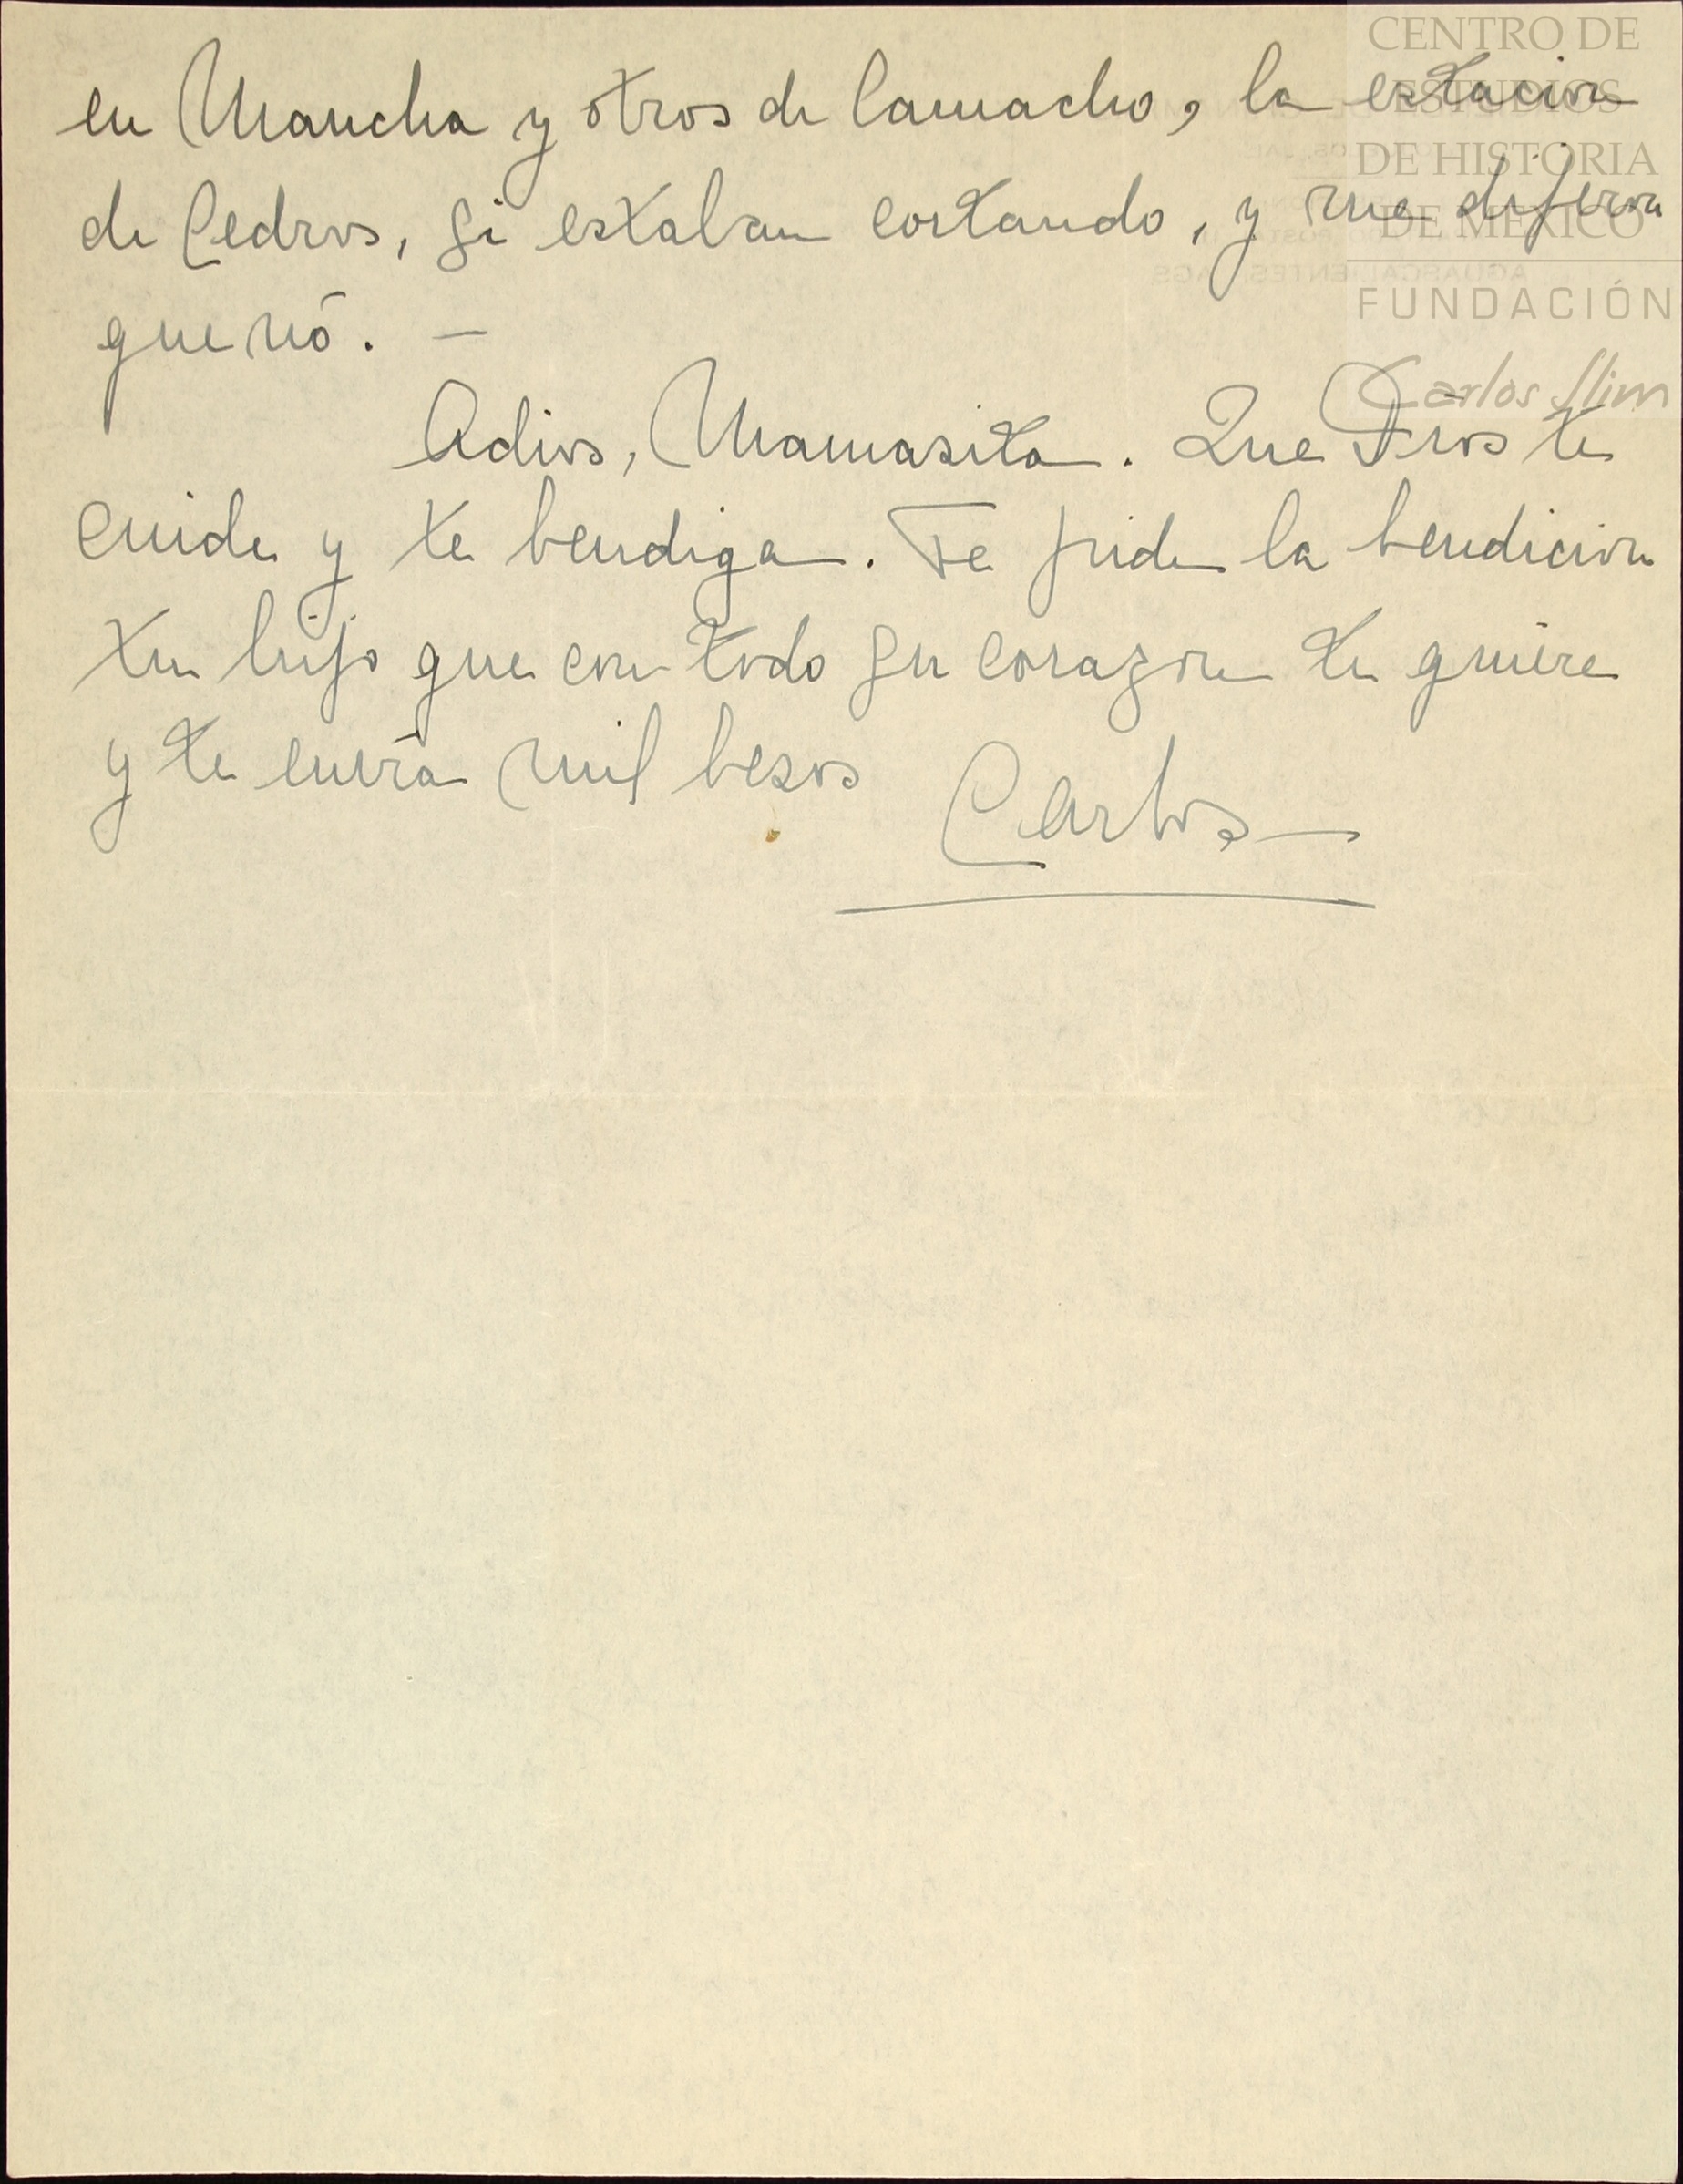 en Mancha y otros de Camacho, la estacion
de Cedros, si estaban cortando, y me dijeron
que nó. —
Adios, Mamasita. Que Dios te
cuide y te bendiga. Te pide la bendicion
tu hijo que con todo su corazon te quiere
y te envía mil besos
Carlos
CENTRO DE
ESTUDIOS
DE HISTORIA
DE MÉXICO
FUNDACIÓN
Carlos Slim